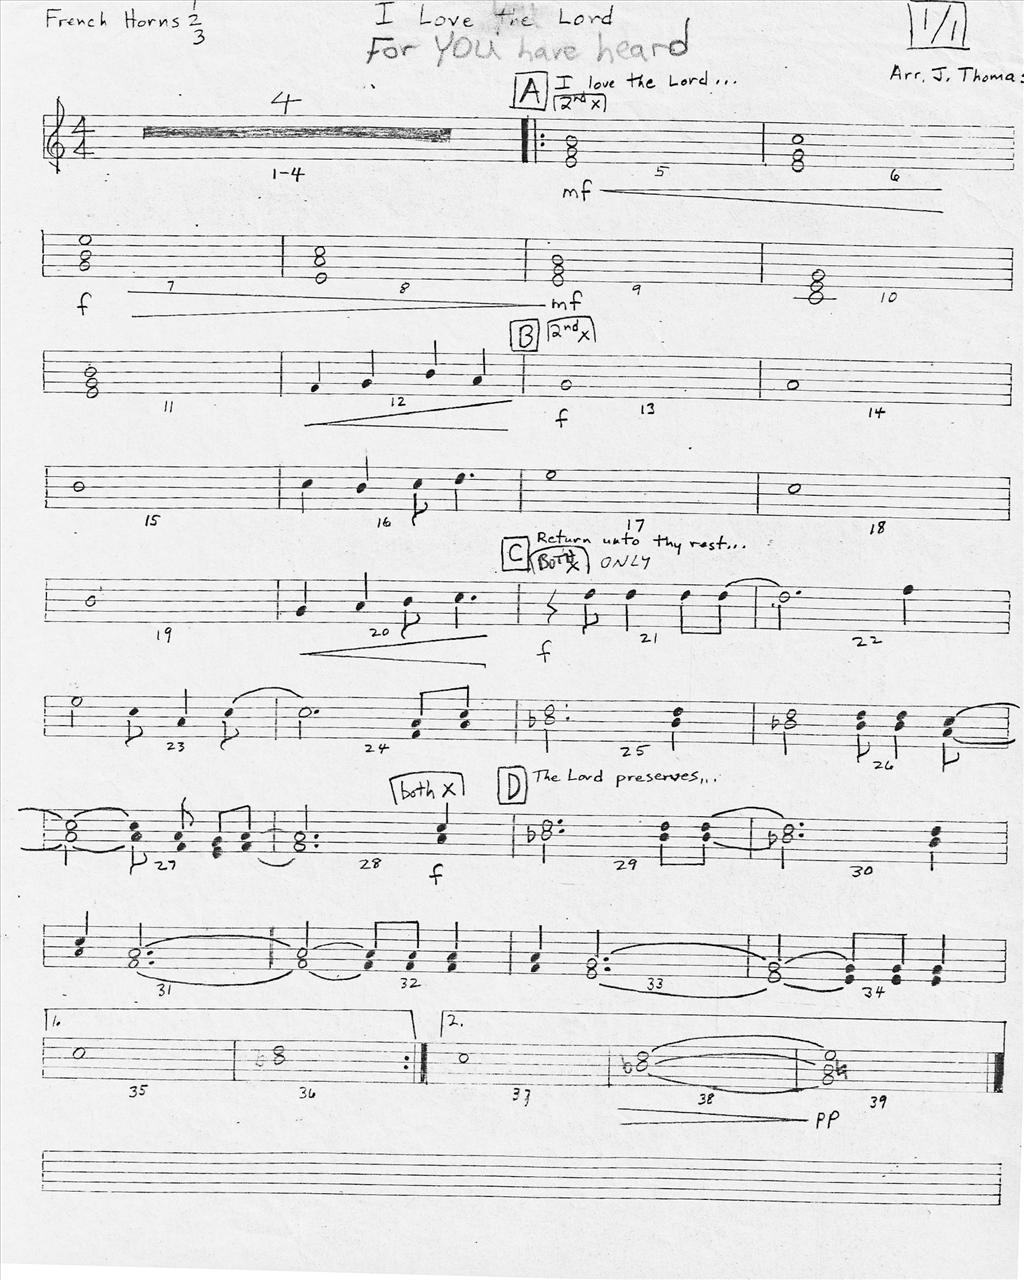 French Horns 1 2 3
I Love the Lord
For YOU have heard
1/1
Arr. J. Thomas
A I love the Lord...
2nd x
4
4
4
1-4 5 6
mf
7 8 9 10
f mf
B 2nd x
11 12 13 14
f
15 16 17 18
C Return unto thy rest...
Both x ONLY
19 20 21 22
f
23 24 25 26
both x D The Lord preserves...
27 28 29 30
f
31 32 33 34
1. 2.
35 36 37 38 39
pp